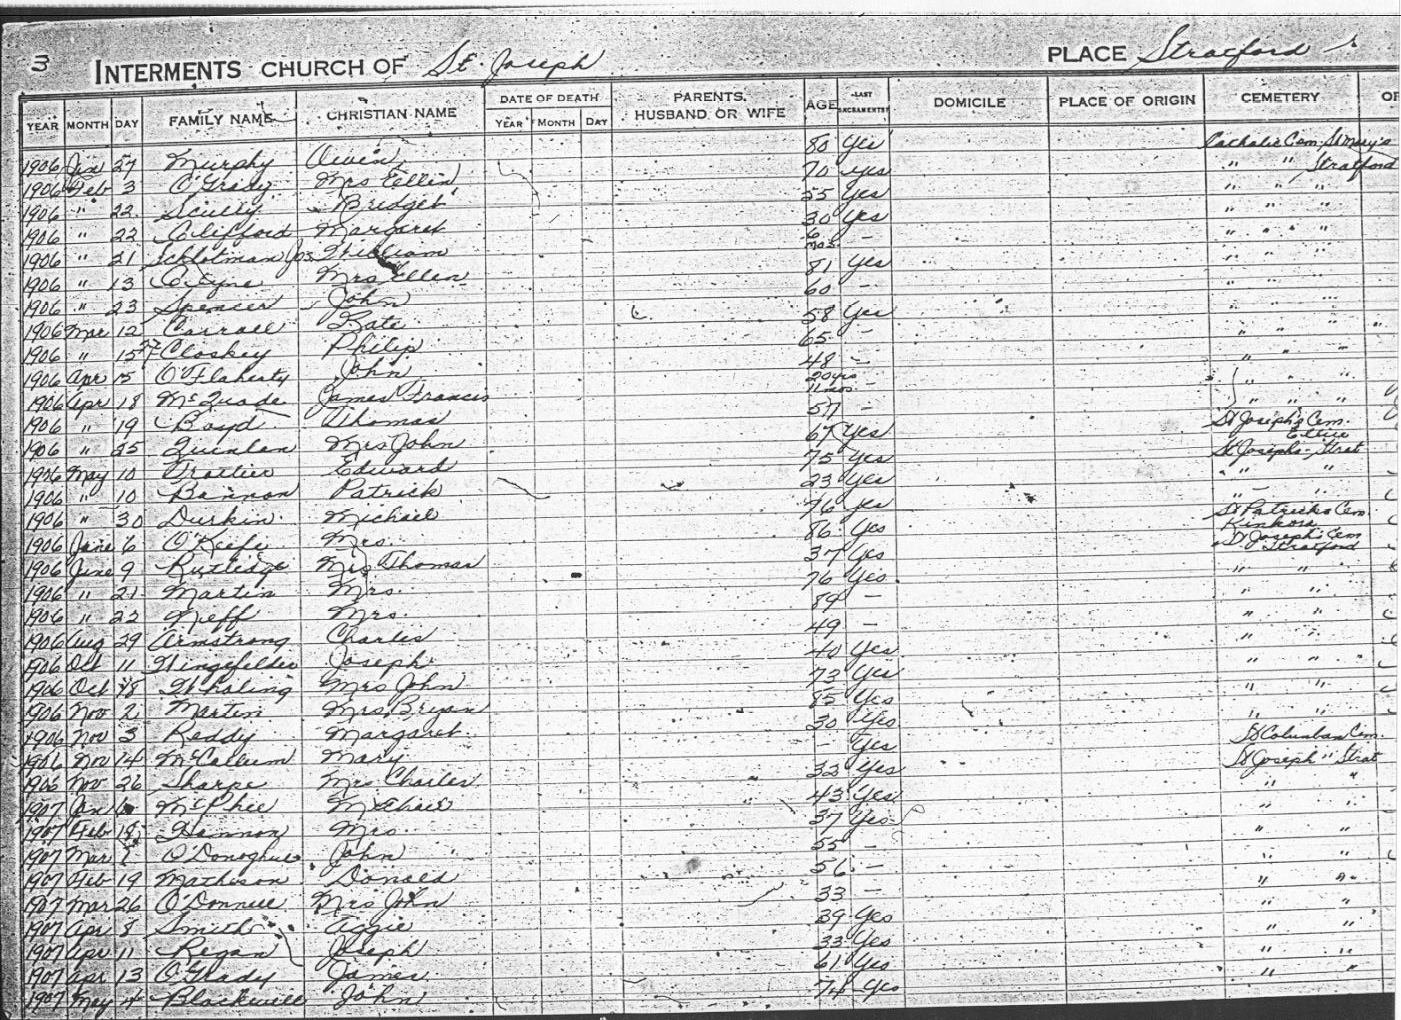 3 INTERMENTS CHURCH OF St. Joseph PLACE Stratford
YEAR MONTH DAY FAMILY NAME CHRISTIAN NAME DATE OF DEATH YEAR MONTH DAY PARENTS, HUSBAND OR WIFE AGE LAST SACRAMENTS? DOMICILE PLACE OF ORIGIN CEMETERY
1906 Jan 27 Murphy Owen 80 Yes Catholic Cem. St Mary's
1906 Feb 3 O'Grady Mrs Ellen 70 yes " " Stratford
1906 " 22 Scully Bridget 55 Yes " " "
1906 " 22 Clifford Margaret 30 Yes " " " "
1906 " 21 Schlotman Jos William 6 mos - " " "
1906 " 13 Coyne Mrs Ellen 81 yes " " "
1906 " 23 Spencer John 60 - " " "
1906 Mar 12 Carroll Kate 58 Yes " " "
1906 " 15 Closkey Philip 65 - " " "
1906 Apr 5 O'Flaherty John 48 - " " "
1906 Apr 18 McQuade James Francis 20 yrs 11 mos - " " "
1906 " 19 Boyd Thomas 57 - " " "
1906 " 25 Quinlan Mrs John 67 Yes St Joseph's Cem.
1906 May 10 Trottier Edward 75 Yes St Josephs - Strat
1906 " 10 Bannon Patrick 23 Yes " "
1906 " 30 Durkin Michael 76 Yes " "
1906 June 6 O'Keefe Mrs. 86 Yes St Patricks Cem. Kinkora
1906 June 9 Rutledge Mrs Thomas 37 Yes St Joseph's Cem Stratford
1906 " 21 Martin Mrs. 76 Yes " "
1906 " 22 Neff Mrs. 89 - " "
1906 Aug 29 Armstrong Charles 49 - " "
1906 Oct 11 Hingefelder Joseph 40 Yes " "
1906 Oct 18 Whaling Mrs John 73 Yes " "
1906 Nov 2 Martin Mrs Bryan 85 Yes " "
1906 Nov 3 Reddy Margaret 30 Yes " "
1906 Nov 14 McCallum Mary - Yes St Columban Cem.
1906 Nov 26 Sharpe Mrs Charles 32 Yes St Joseph " Strat
1907 Jan 6 McPhee Michael 43 Yes " "
1907 Feb 18 Hannon Mrs. 37 Yes
1907 Mar 7 O'Donoghue John 55 - " "
1907 Feb 19 Matheson Donald 56 - " "
1907 Mar 26 O'Donnell Mrs John 33 - " "
1907 Apr 8 Smith Aggie 39 Yes " "
1907 Apr 11 Regan Joseph 33 Yes " "
1907 Apr 13 O'Grady James 61 Yes " "
1907 May 4 Blackwell John 74 Yes " "